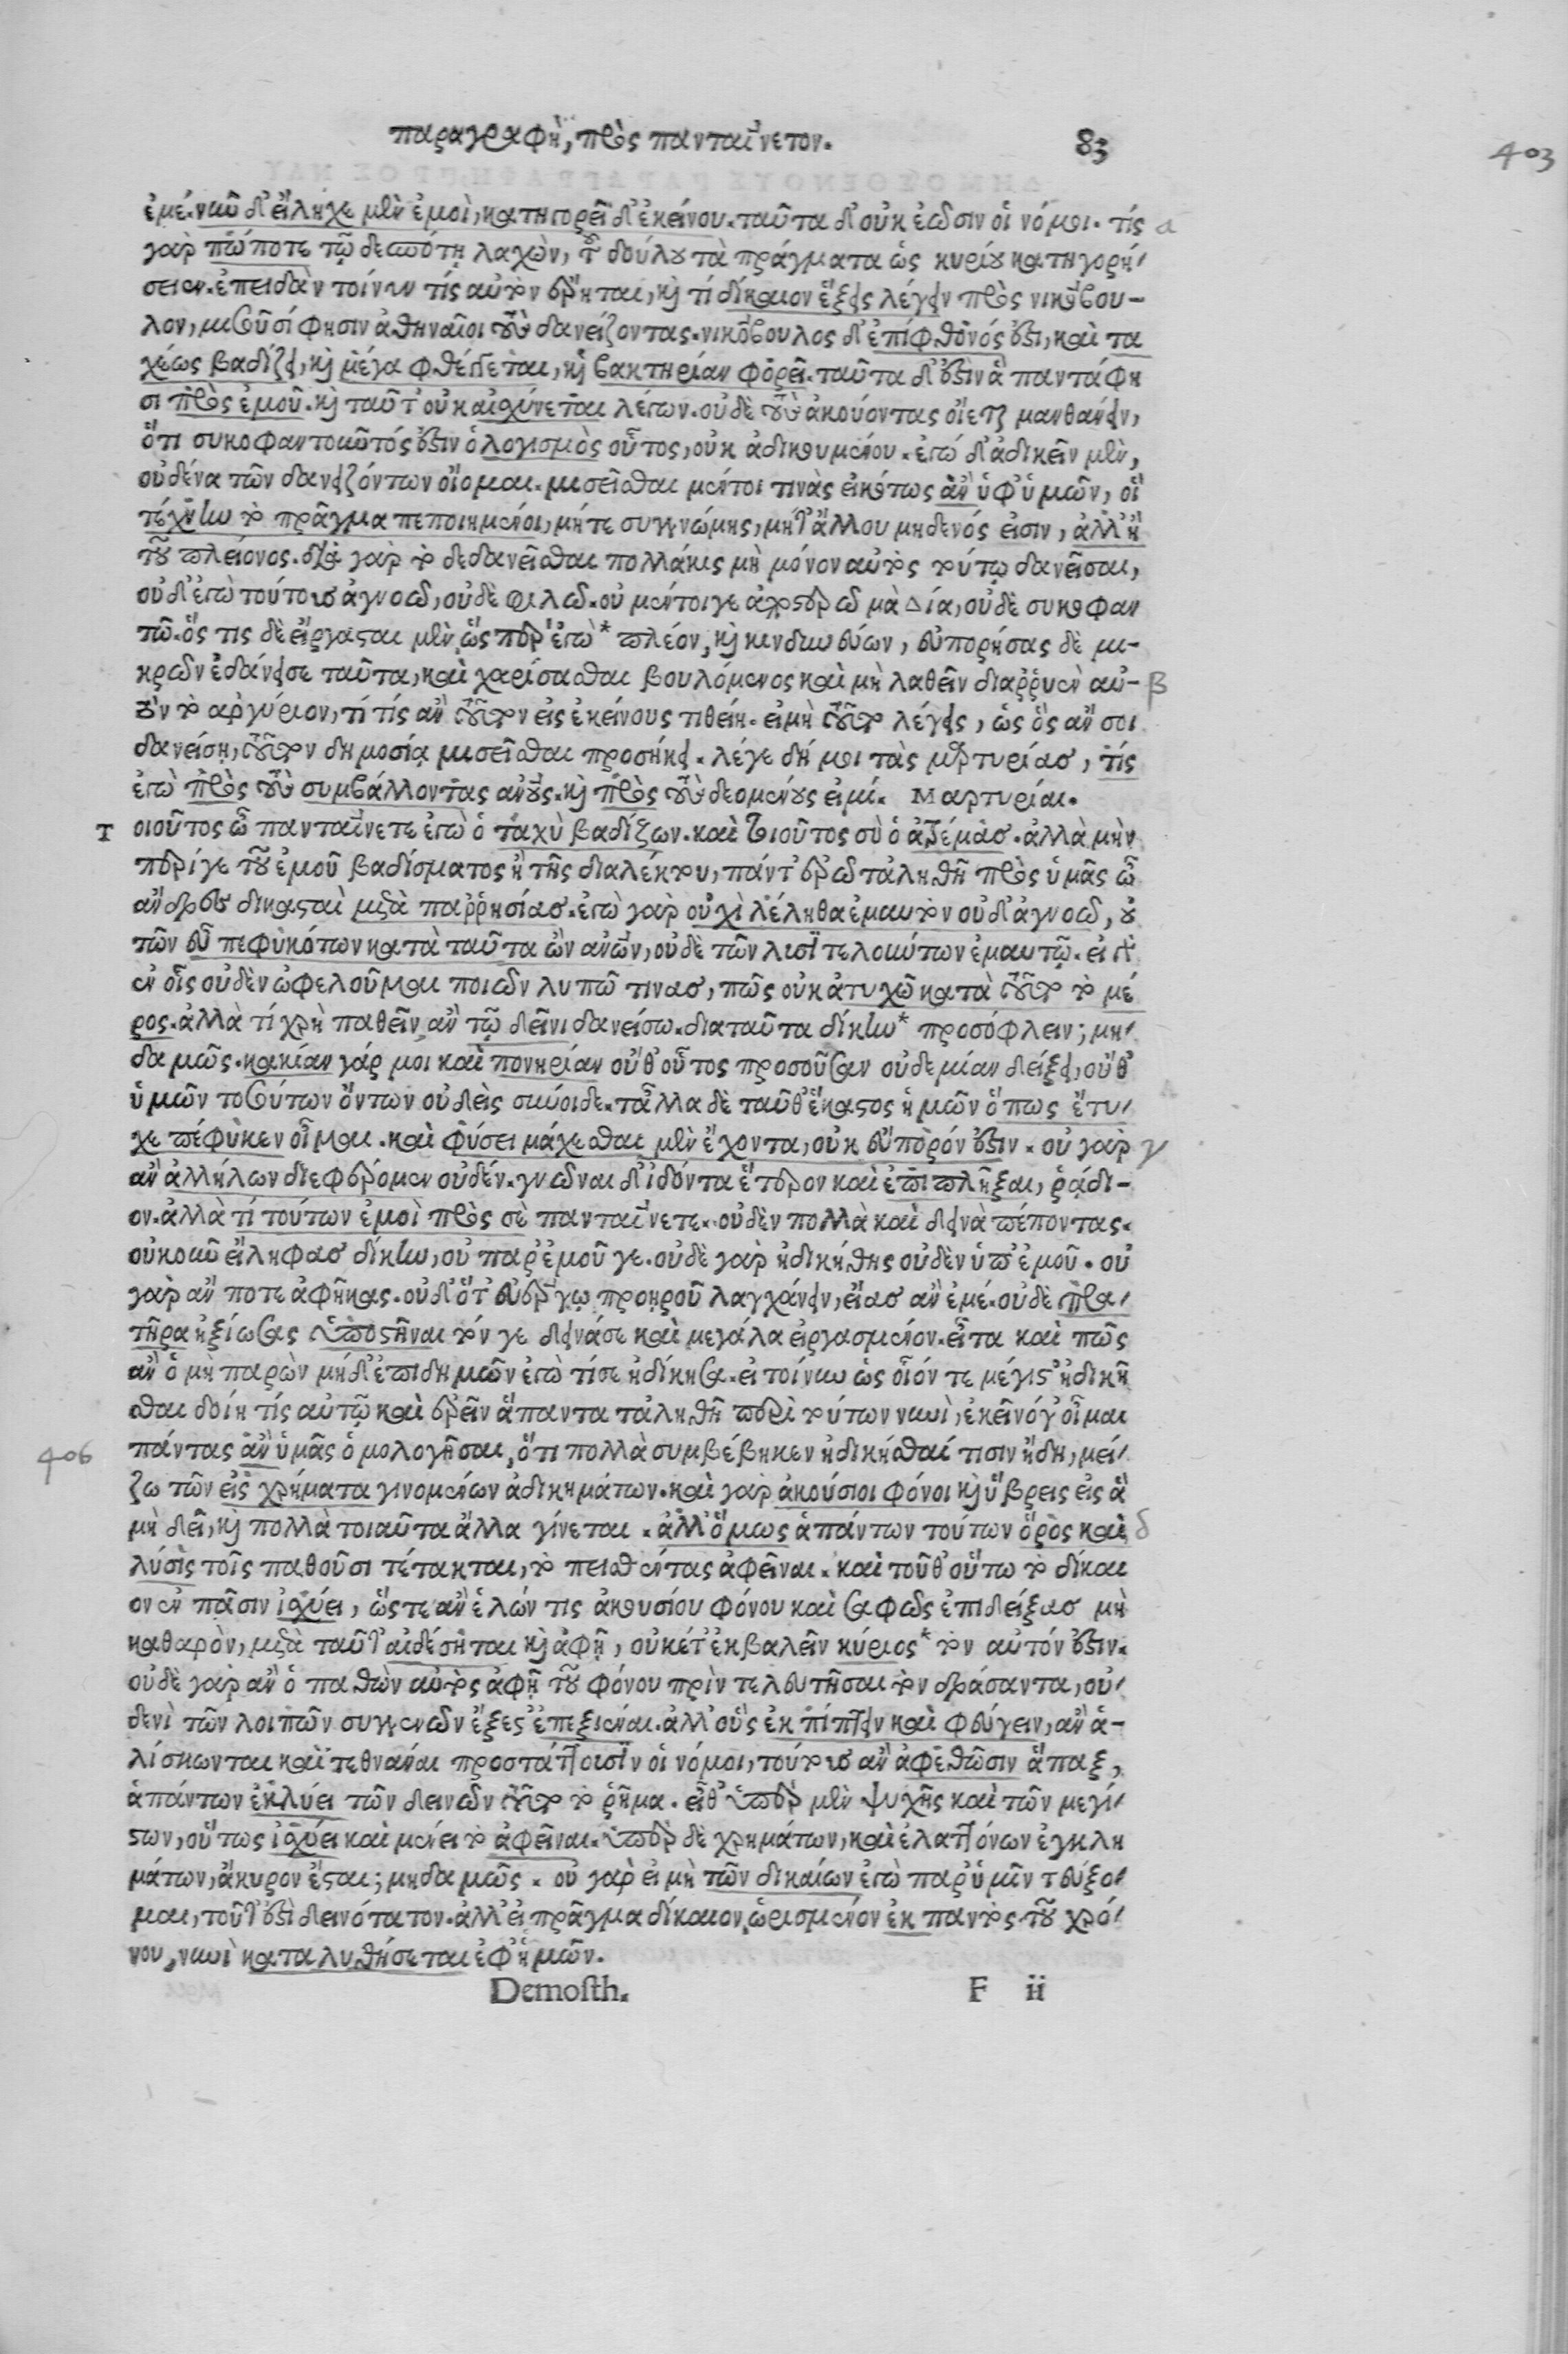 παραγραφὴ, πρὸς πανταίνετον. 83
403
ἐμέ. νῦν δ' εἴληχε μὲν ἐμοὶ, κατηγορεῖ δ' ἐκείνου. ταῦτα δ' οὐκ ἐῶσιν οἱ νόμοι. τίς α
γὰρ πώποτε τῷ δεσπότῃ λαχὼν, τοῦ δούλου τὰ πράγματα ὡς κυρίου κατηγορή-
σειεν. ἐπειδὰν τοίνυν τίς αὐτὸν ἔρηται, καὶ τί δίκαιον ἕξεις λέγειν πρὸς νικόβου-
λον, μισοῦσί φησιν ἀθηναῖοι τοὺς δανείζοντας. νικόβουλος δ' ἐπίφθονός ἐστι, καὶ τα
χέως βαδίζει, καὶ μέγα φθέγγεται, καὶ βακτηρίαν φορεῖ. ταῦτα δ' ἐστὶν ἅ παντά φη
σι πρὸς ἐμοῦ. καὶ ταῦτ' οὐκ αἰσχύνεται λέγων. οὐδὲ τοὺς ἀκούοντας οἴεται μανθάνειν,
ὅτι συκοφαντοῦντός ἐστιν ὁ λογισμὸς οὗτος, οὐκ ἀδικουμένου. ἐγώ δ' ἀδικεῖν μὲν,
οὐδένα τῶν δανειζόντων οἴομαι. μισεῖσθαι μέντοι τινὰς εἰκότως ἂν ὑφ' ὑμῶν, οἳ
τέχνην τὸ πρᾶγμα πεποιημένοι, μήτε συγγνώμης, μήτ' ἄλλου μηδενός εἰσιν, ἀλλ' ἢ
τοῦ πλείονος. διὰ γὰρ τὸ δεδανεῖσθαι πολλάκις μὴ μόνον αὐτὸς τούτῳ δανεῖσαι,
οὐδ' ἐγὼ τούτους ἀγνοῶ, οὐδὲ φιλῶ. οὐ μέντοιγε ἀποστερῶ μὰ Δία, οὐδὲ συκοφαν
τῶ. ὅς τις δὲ εἴργασται μὲν, ὥσπερ ἐγὼ* πλέον, καὶ κινδυνεύων, εὐπορήσας δὲ μι-
κρῶν ἐδάνεισε ταῦτα, καὶ χαρίσασθαι βουλόμενος καὶ μὴ λαθεῖν διαῤῥυὲν αὐ- β
τὸν τὸ αργύριον, τί τίς ἂν τοῦτον εἰς ἐκείνους τιθείη. εἰμὴ τοῦτο λέγεις, ὡς ὃς ἄν σοι
δανείσῃ, τοῦτον δημοσίᾳ μισεῖσθαι προσήκει. λέγε δή μοι τὰς μαρτυρίας, τίς
ἐγὼ πρὸς τοὺς συμβάλλοντας αὐτοῖς. καὶ πρὸς τοὺς δεομένους εἰμί. Μαρτυρίαι.
Τ οιοῦτος ὦ πανταίνετε ἐγὼ ὁ ταχὺ βαδίζων. καὶ τοιοῦτος σὺ ὁ ἀτρέμας. ἀλλὰ μὴν
περί γε τοῦ ἐμοῦ βαδίσματος ἢ τῆς διαλέκτου, πάντ' ἐρῶ τἀληθῆ πρὸς ὑμᾶς ὦ
ανδρες δικασταὶ μετὰ παῤῥησίας. ἐγὼ γὰρ οὐχὶ λέληθα ἐμαυτὸν οὐδ' ἀγνοῶ, οὐ
τῶν εὖ πεφυκότων κατὰ ταῦτα ὢν ανων, οὐδὲ τῶν λυσιτελούντων ἐμαυτῷ. εἰ γὰρ
ἐν οἷς οὐδὲν ὠφελοῦμαι ποιῶν λυπῶ τινας, πῶς οὐκ ἀτυχῶ κατὰ τοῦτο τὸ μέ
ρος. ἀλλὰ τί χρὴ παθεῖν ἂν τῷ δεῖνι δανείσω. διαταῦτα δίκην* προσόφλειν; μη-
δα μῶς. κακίαν γάρ μοι καὶ πονηρίαν οὔθ' οὗτος προσοῦσαν οὐδεμίαν δείξει, οὔθ'
ὑμῶν τοσούτων ὄντων οὐδεὶς σύνοιδε. τἄλλα δὲ ταῦθ' ἕκαστος ἡμῶν ὅπως ἔτυ-
χε πέφυκεν οἶμαι. καὶ φύσει μάχεσθαι μὲν ἔχοντα, οὐκ εὔπορόν ἐστιν. οὐ γὰρ γ
ἂν ἀλλήλων διεφέρομεν οὐδέν. γνῶναι δ' ἰδόντα ἕτερον καὶ ἐπιπλῆξαι, ῥᾴδι-
ον. ἀλλὰ τί τούτων ἐμοὶ πρὸς σὲ πανταίνετε. οὐδὲν πολλὰ καὶ δεινὰ πέπονθας.
οὐκοῦν εἴληφας δίκην, οὐ παρ' ἐμοῦ γε. οὐδὲ γὰρ ἠδικήθης οὐδὲν ὑπ' ἐμοῦ. οὐ
γὰρ ἄν ποτε ἀφῆκας. οὐδ' ὅτ' εὐέργῳ προῃροῦ λαγχάνειν, εἴας ἂν ἐμέ. οὐδὲ πρα-
τῆρα ἠξίωσας ὑποστῆναι τόν γε δεινάσε καὶ μεγάλα εἰργασμένον. εἶτα καὶ πῶς
ἂν ὁ μὴ παρὼν μήδ' ἐπιδημῶν ἐγὼ τίσε ἠδίκησα. εἰ τοίνυν ὡς οἷόν τε μέγιστ' ἠδικῆ
σθαι δοίη τίς αὐτῷ καὶ ἐρεῖν ἅπαντα τἀληθῆ περὶ τούτων νυνὶ, ἐκεῖνό γ' οἶμαι
406 πάντας ἂν ὑμᾶς ὁμολογῆσαι, ὅτι πολλὰ συμβέβηκεν ἠδικῆσθαί τισιν ἤδη, μεί-
ζω τῶν εἰς χρήματα γινομένων ἀδικημάτων. καὶ γὰρ ἀκούσιοι φόνοι καὶ ὕβρεις εἰς ἃ
μὴ δεῖ, καὶ πολλὰ τοιαῦτα ἄλλα γίνεται. ἀλλ' ὅμως ἁπάντων τούτων ὅρος καὶ δ
λύσις τοῖς παθοῦσι τέτακται, τὸ πεισθέντας ἀφεῖναι. καὶ τοῦθ' οὕτω τὸ δίκαι
ον ἐν πᾶσιν ἰσχύει, ὥστε ἂν ἑλών τις ἀκουσίου φόνου καὶ σαφῶς ἐπιδείξας μὴ
καθαρὸν, μετὰ ταῦτ' αἰδέσηται καὶ ἀφῇ, οὐκέτ' ἐκβαλεῖν κύριος* τὸν αὐτόν ἐστιν.
οὐδὲ γὰρ ἂν ὁ παθὼν αὐτὸς ἀφῇ τοῦ φόνου πρὶν τελευτῆσαι τὸν δράσαντα, οὐ-
δενὶ τῶν λοιπῶν συγγενῶν ἔξεστ' ἐπεξιέναι. ἀλλ' οὓς ἐκπίπτειν καὶ φεύγειν, ἂν ἁ-
λίσκωνται καὶ τεθνάναι προστάττουσιν οἱ νόμοι, τούτους ἂν ἀφεθῶσιν ἅπαξ,
ἁπάντων ἐκλύει τῶν δεινῶν τοῦτο τὸ ῥῆμα. εἶθ' ὑπὲρ μὲν ψυχῆς καὶ τῶν μεγί-
στων, οὕτως ἰσχύει καὶ μένει τὸ ἀφεῖναι. ὑπὲρ δὲ χρημάτων, καὶ ἐλαττόνων ἐγκλη
μάτων, ἄκυρον ἔσται; μηδαμῶς. οὐ γὰρ εἰ μὴ τῶν δικαίων ἐγὼ παρ' ὑμῖν τεύξο-
μαι, τοῦτ' ἐστὶ δεινότατον. ἀλλ' εἰ πρᾶγμα δίκαιον ὡρισμένον ἐκ παντὸς τοῦ χρό-
νου, νυνὶ καταλυθήσεται ἐφ' ἡμῶν.
Demosth. F ii